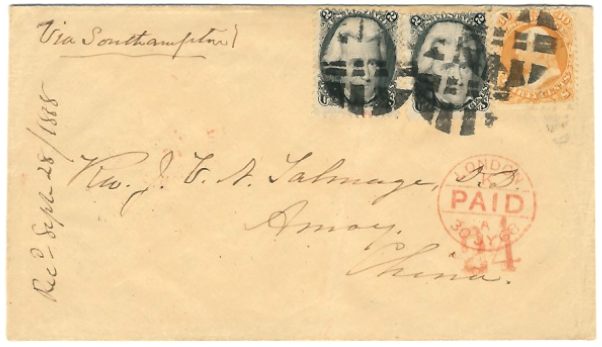 Via Southampton
Rec'd Sept. 28/1868
Rev. J. V. N. Talmage, D.D.
Amoy,
China.
LONDON
PAID
30 JY 68
24